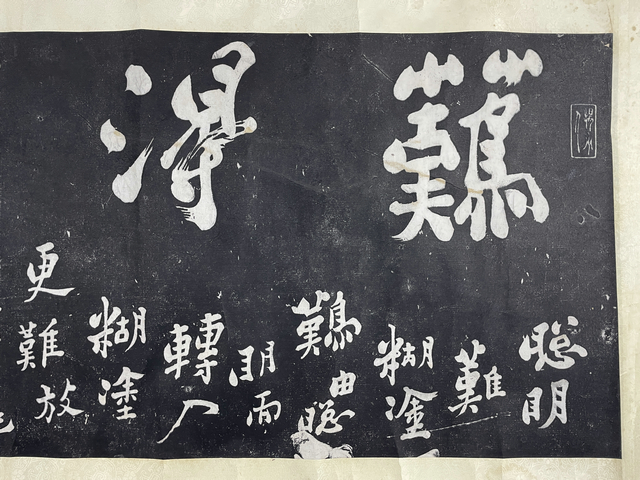 難得
聰明
難
糊塗
難
由聰
明而
轉入
糊塗
更難
放